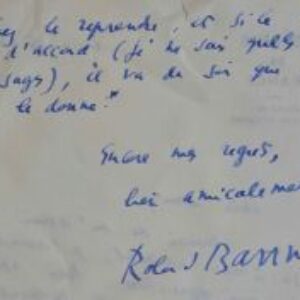 le reprendre, et si le
d'accord (je ne sais quels
), il va de soi que
le donne.*
Encore mes regrets,
bien amicalemen
Roland Barth